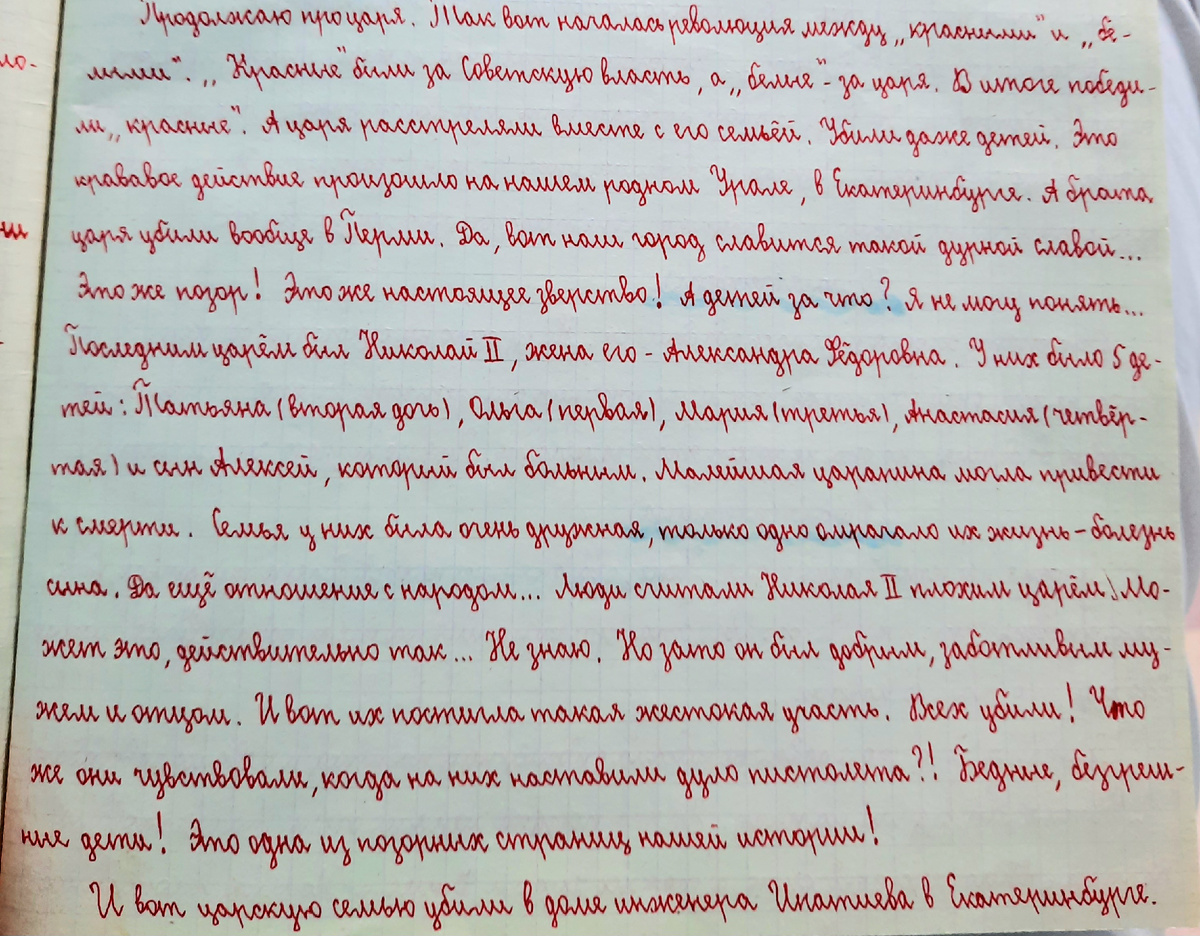 Продолжаю про царя. Так вот началась революция между „красными" и „бе-
ло-
лыми". „Красные" были за Советскую власть, а „белые" - за царя. В итоге победи-
ли „красные". А царя расстреляли вместе с его семьёй. Убили даже детей. Это
крававое действие произошло на нашем родном Урале, в Екатеринбурге. А брата
царя убили вообще в Перми. Да, вот наш город славится такой дурной славой...
Это же позор! Это же настоящее зверство! А детей за что? Я не могу понять...
Последним царём был Николай II, жена его - Александра Фёдоровна. У них было 5 де-
тей: Татьяна (вторая дочь), Ольга (первая), Мария (третья), Анастасия (четвёр-
тая) и сын Алексей, который был больным. Малейшая царапина могла привести
к смерти. Семья у них была очень дружная, только одно омрачало их жизнь - болезнь
сына. Да ещё отношение с народом... Люди считали Николая II плохим царём. Мо-
жет это, действительно так... Не знаю. Но зато он был добрым, заботливым му-
жем и отцом. И вот их постигла такая жестокая участь. Всех убили! Что
же они чувствовали, когда на них наставили дуло пистолета?! Бедные, безгреш-
ные дети! Это одна из позорных страниц нашей истории!
И вот царскую семью убили в доме инженера Ипатиева в Екатеринбурге.